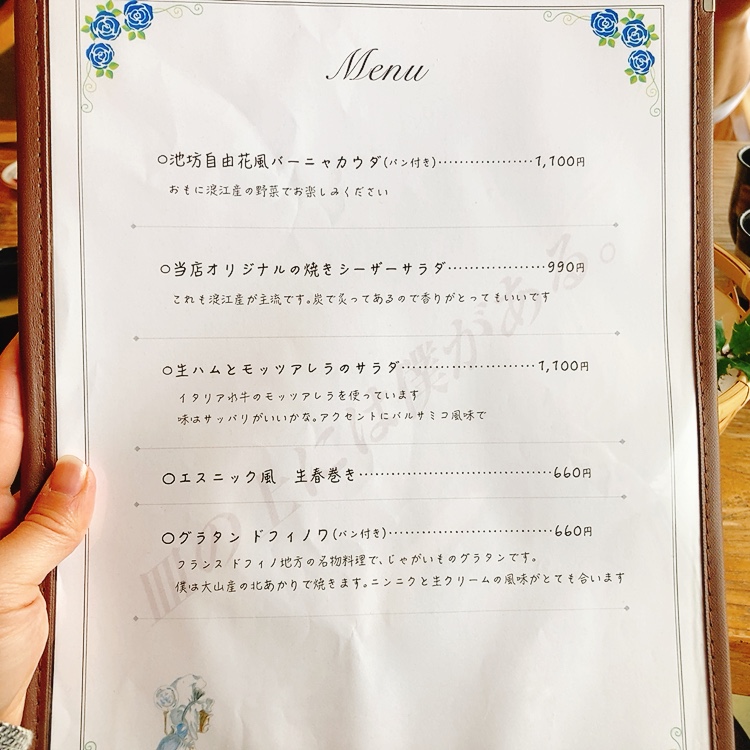 Menu
○池坊自由花風バーニャカウダ(パン付き)･･････････････････1,100円
おもに浪江産の野菜でお楽しみください
○当店オリジナルの焼きシーザーサラダ･･････････････････990円
これも浪江産が主流です。炭で炙ってあるので香りがとってもいいです
○生ハムとモッツアレラのサラダ･････････････････････････1,100円
イタリア水牛のモッツアレラを使っています
味はサッパリがいいかな。アクセントにバルサミコ風味で
○エスニック風 生春巻き･･･････････････････････････････････660円
○グラタン ドフィノワ(パン付き)･････････････････････････････660円
フランス ドフィノ地方の名物料理で、じゃがいものグラタンです。
僕は大山産の北あかりで焼きます。ニンニクと生クリームの風味がとても合います
皿の上には僕がある。